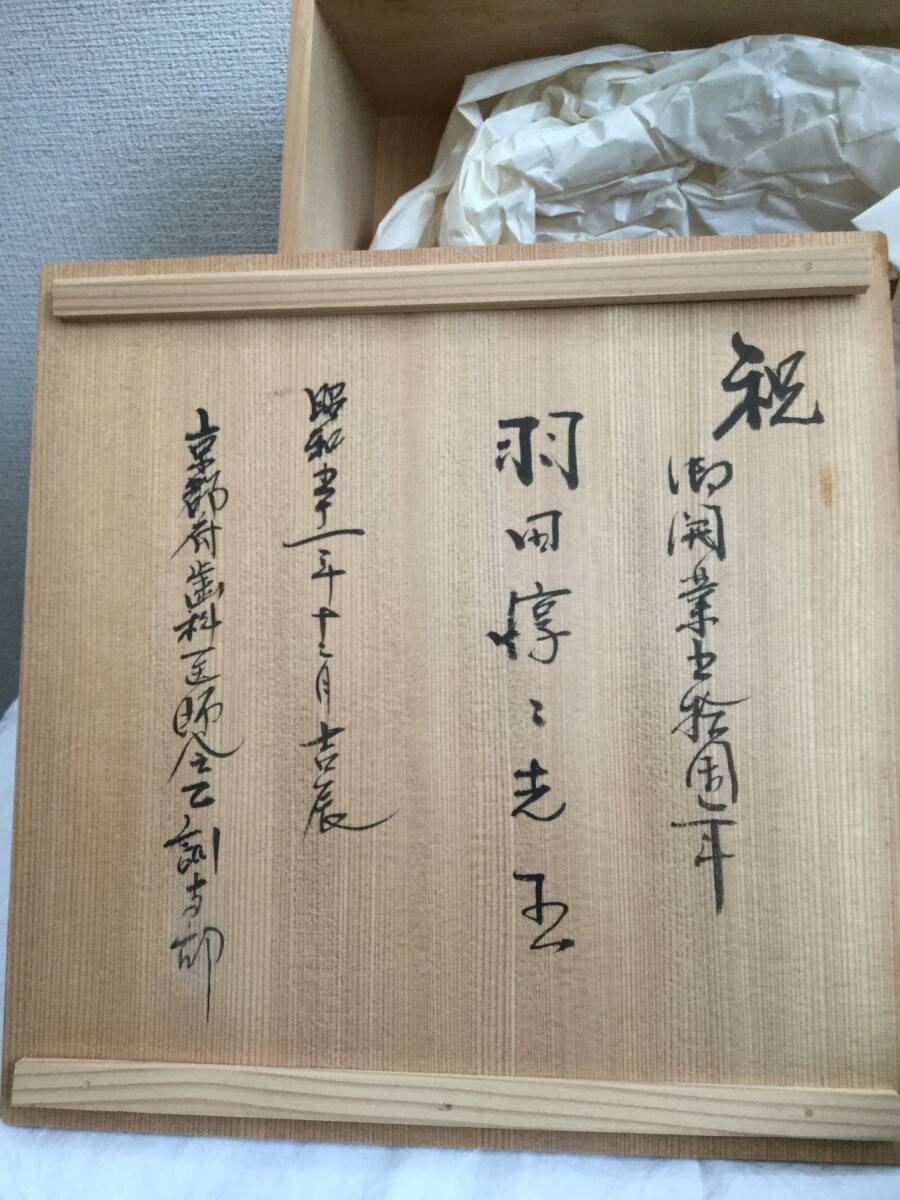 祝
御開業五拾周年
羽田惇二先生
昭和五十一年十二月吉辰
京都府歯科医師会乙訓支部